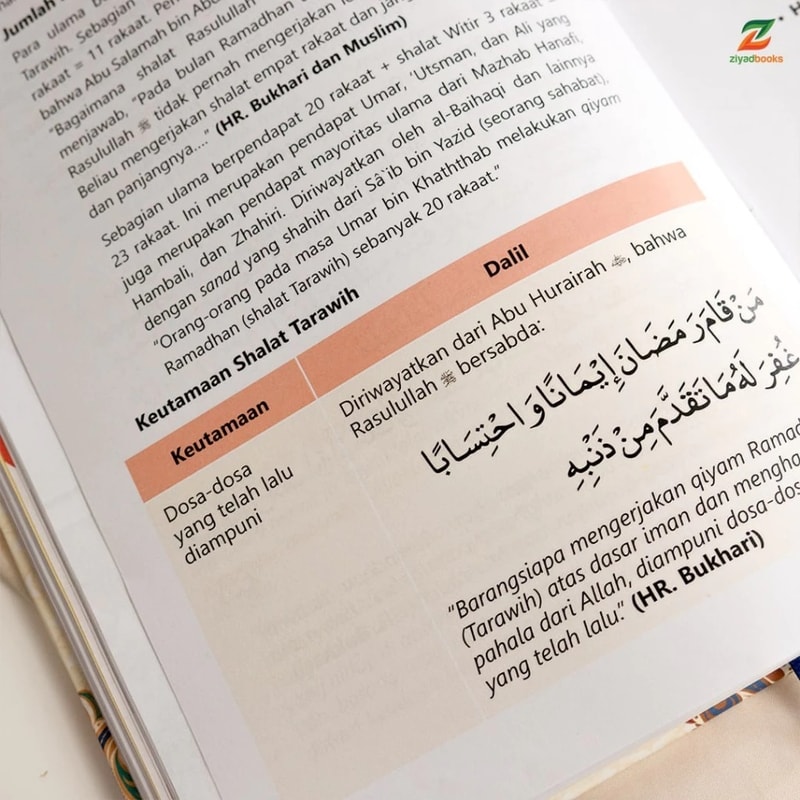 ziyadbooks
Jumlah
Para ulama
Tarawih. Sebagian
rakaat = 11 rakaat.
bahwa Abu Salamah bin
"Bagaimana shalat Rasulullah
menjawab, "Pada bulan Ramadhan
Rasulullah ﷺ tidak pernah mengerjakan
Beliau mengerjakan shalat empat rakaat dan
dan panjangnya...." (HR. Bukhari dan Muslim)
Sebagian ulama berpendapat 20 rakaat + shalat Witir 3 rakaat
23 rakaat. Ini merupakan pendapat Umar, 'Utsman, dan Ali yang
juga merupakan pendapat mayoritas ulama dari Mazhab Hanafi,
Hambali, dan Zhahiri. Diriwayatkan oleh al-Baihaqi dan lainnya
dengan sanad yang shahih dari Sâ`ib bin Yazid (seorang sahabat),
"Orang-orang pada masa Umar bin Khaththab melakukan qiyam
Ramadhan (shalat Tarawih) sebanyak 20 rakaat."
Keutamaan Shalat Tarawih
Keutamaan
Dalil
Dosa-dosa
yang telah lalu
diampuni
Diriwayatkan dari Abu Hurairah, bahwa
Rasulullah ﷺ bersabda:
مَنْ قَامَ رَمَضَانَ إِيْمَانًا وَ احْتِسَابًا
غُفِرَ لَهُ مَا تَقَدَّمَ مِنْ ذَنْبِهِ
"Barangsiapa mengerjakan qiyam
(Tarawih) atas dasar iman dan
pahala dari Allah, diampuni
yang telah lalu." (HR. Bukhari)